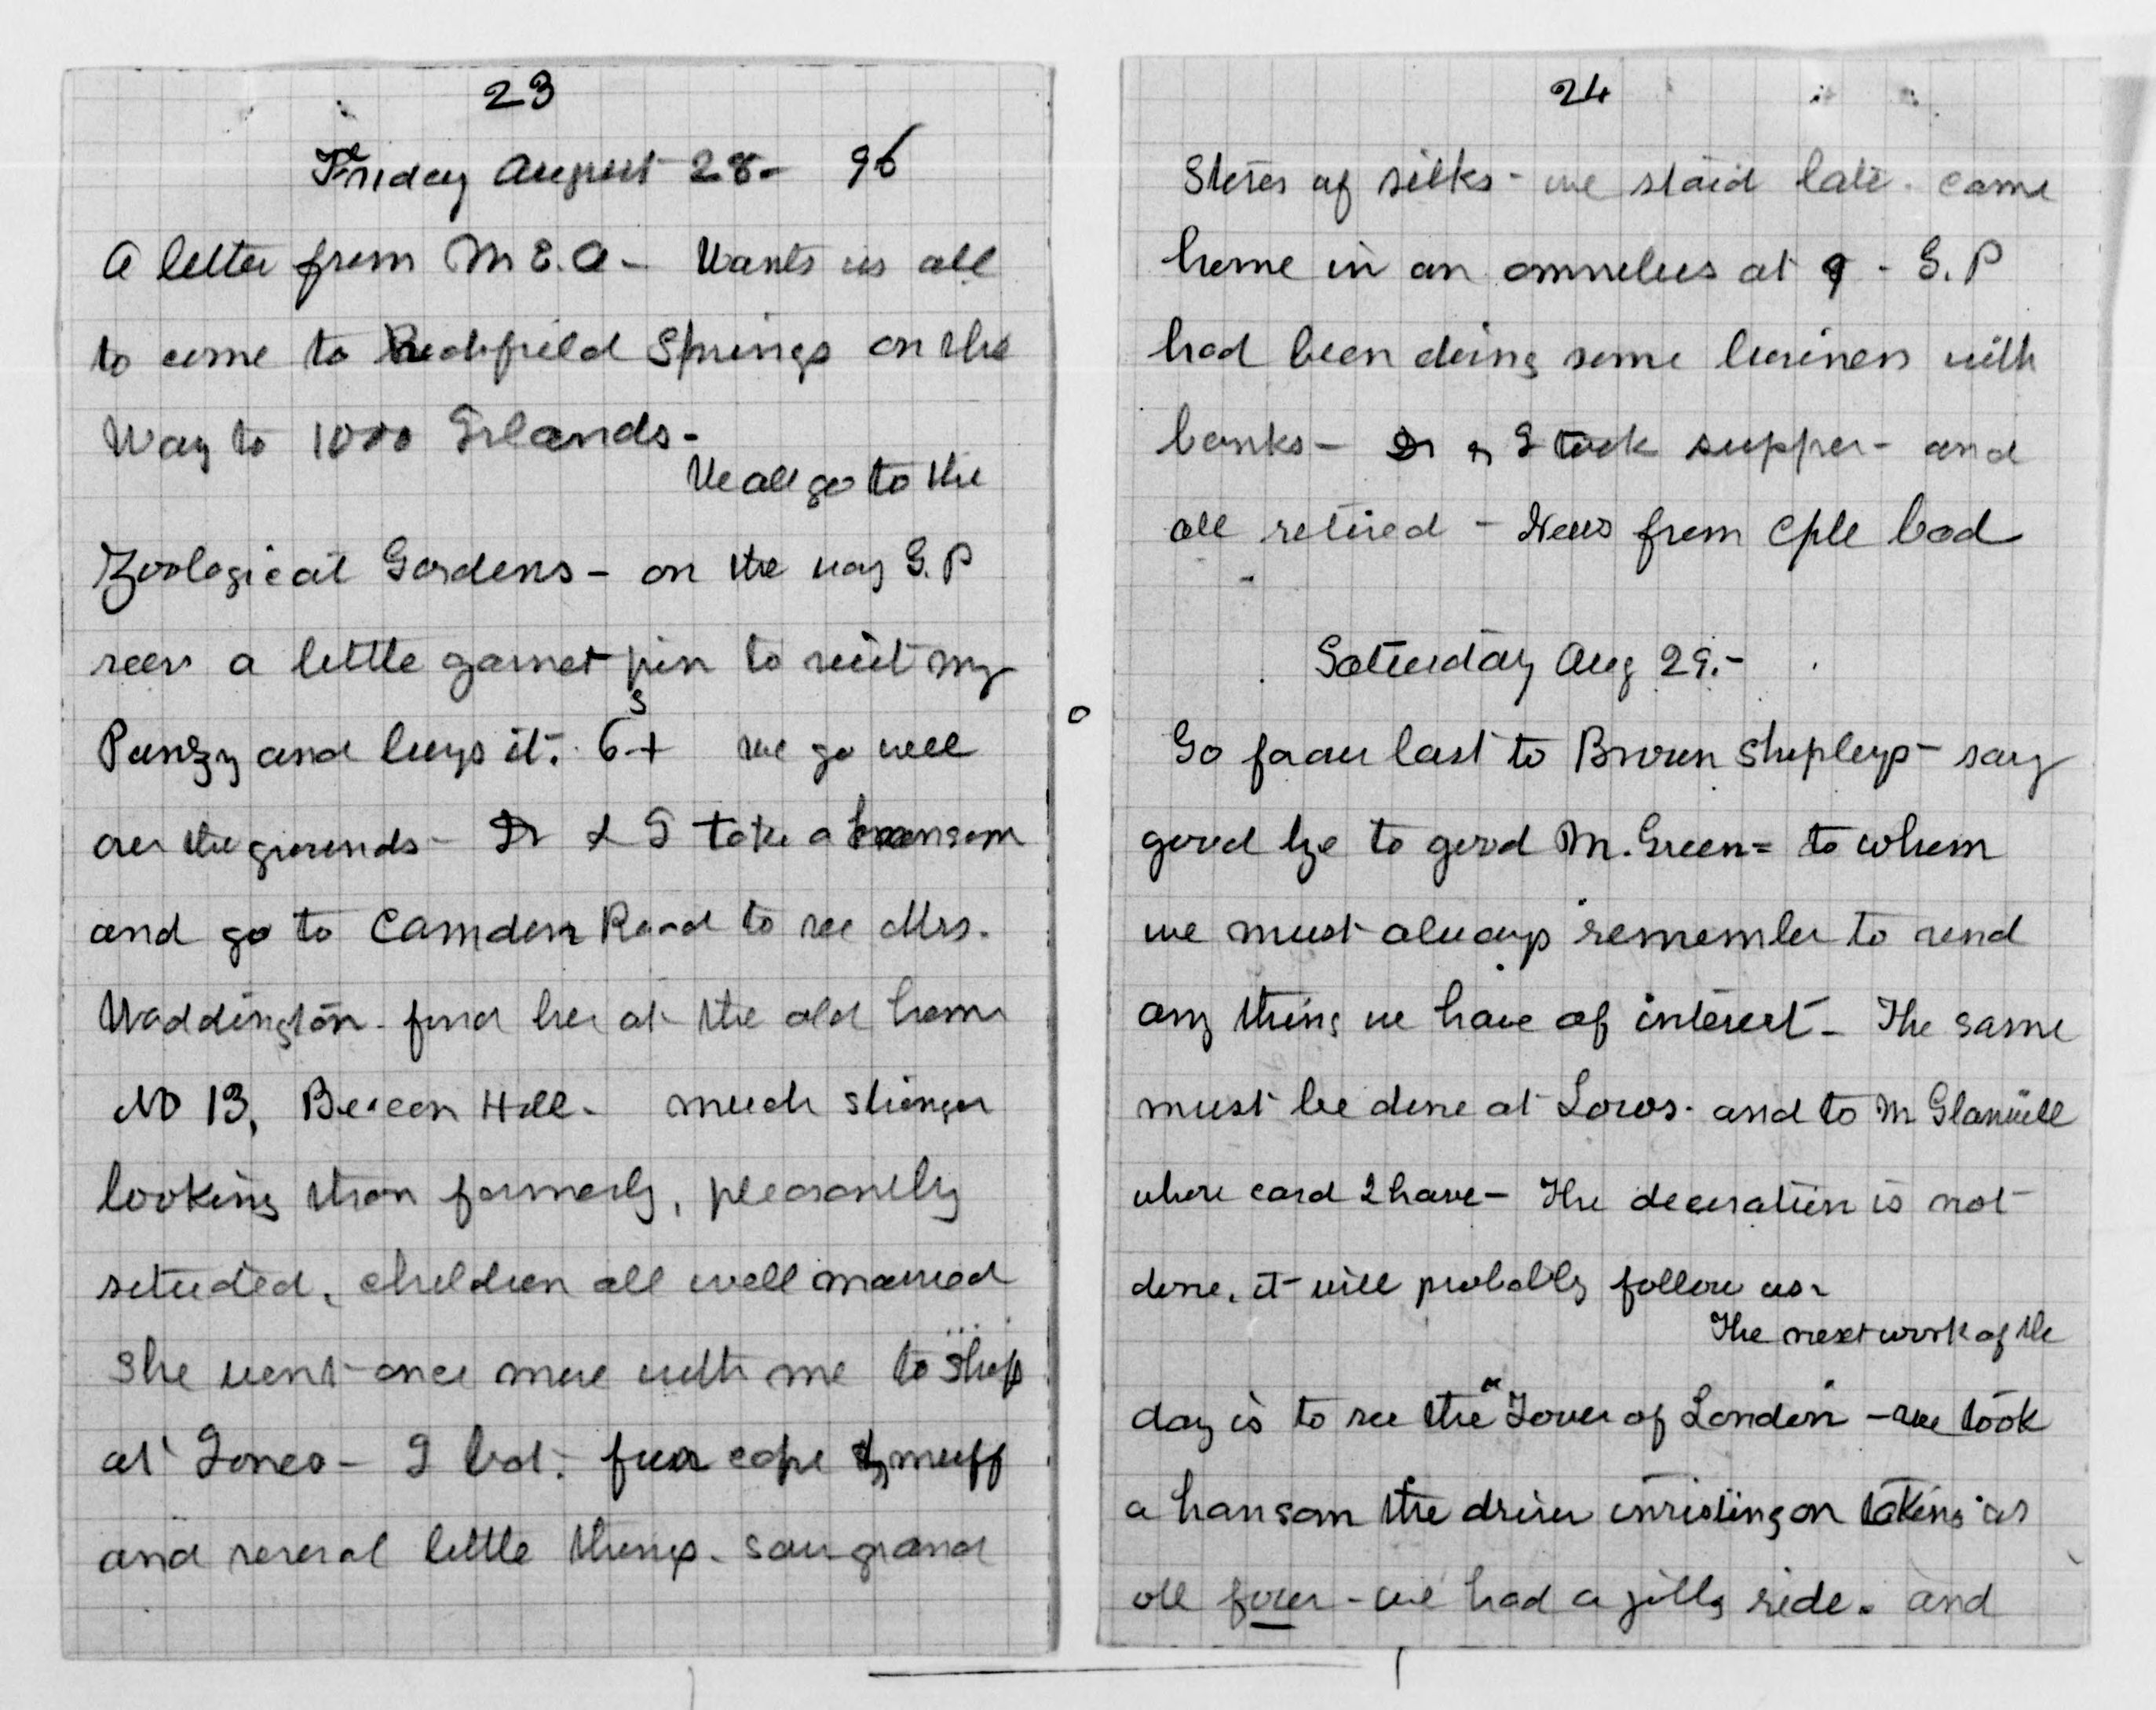 23
Friday August 28 - 96
A letter from M. E. A - Wants us all
to come to Richfield Springs on the
Way to 1000 Islands -
We all go to the
Zoological Gardens - on the way G. P
sees a little garnet pin to suit my
Panzy and buys it. 6 s + we go well
over the grounds - Dr & I take a hansom
and go to Camden Road to see Mrs.
Waddington - find her at the old home
No 13, Beacon Hill - much stronger
looking than formerly, pleasantly
situated, children all well married
She went once more with me to shop
at Jones - I bot. fur cape & muff
and several little things - saw grand
24
Stores of silks - we staid late - came
home in an omnibus at 9 - G. P
had been doing some business with
banks - Dr & I took supper - and
all retired - News from Cple bad
Saturday Aug 29. -
Go for our last to Brown Shipleys - say
good bye to good M. Green = to whom
we must always remember to send
any thing we have of interest - The same
must be done at Lows - and to M Glanville
whose card I have - The decoration is not
done, it will probably follow us -
The next work of the
day is to see the "Tower of London" - we took
a hansom the driver insisting on taking us
all four - we had a jolly ride. and